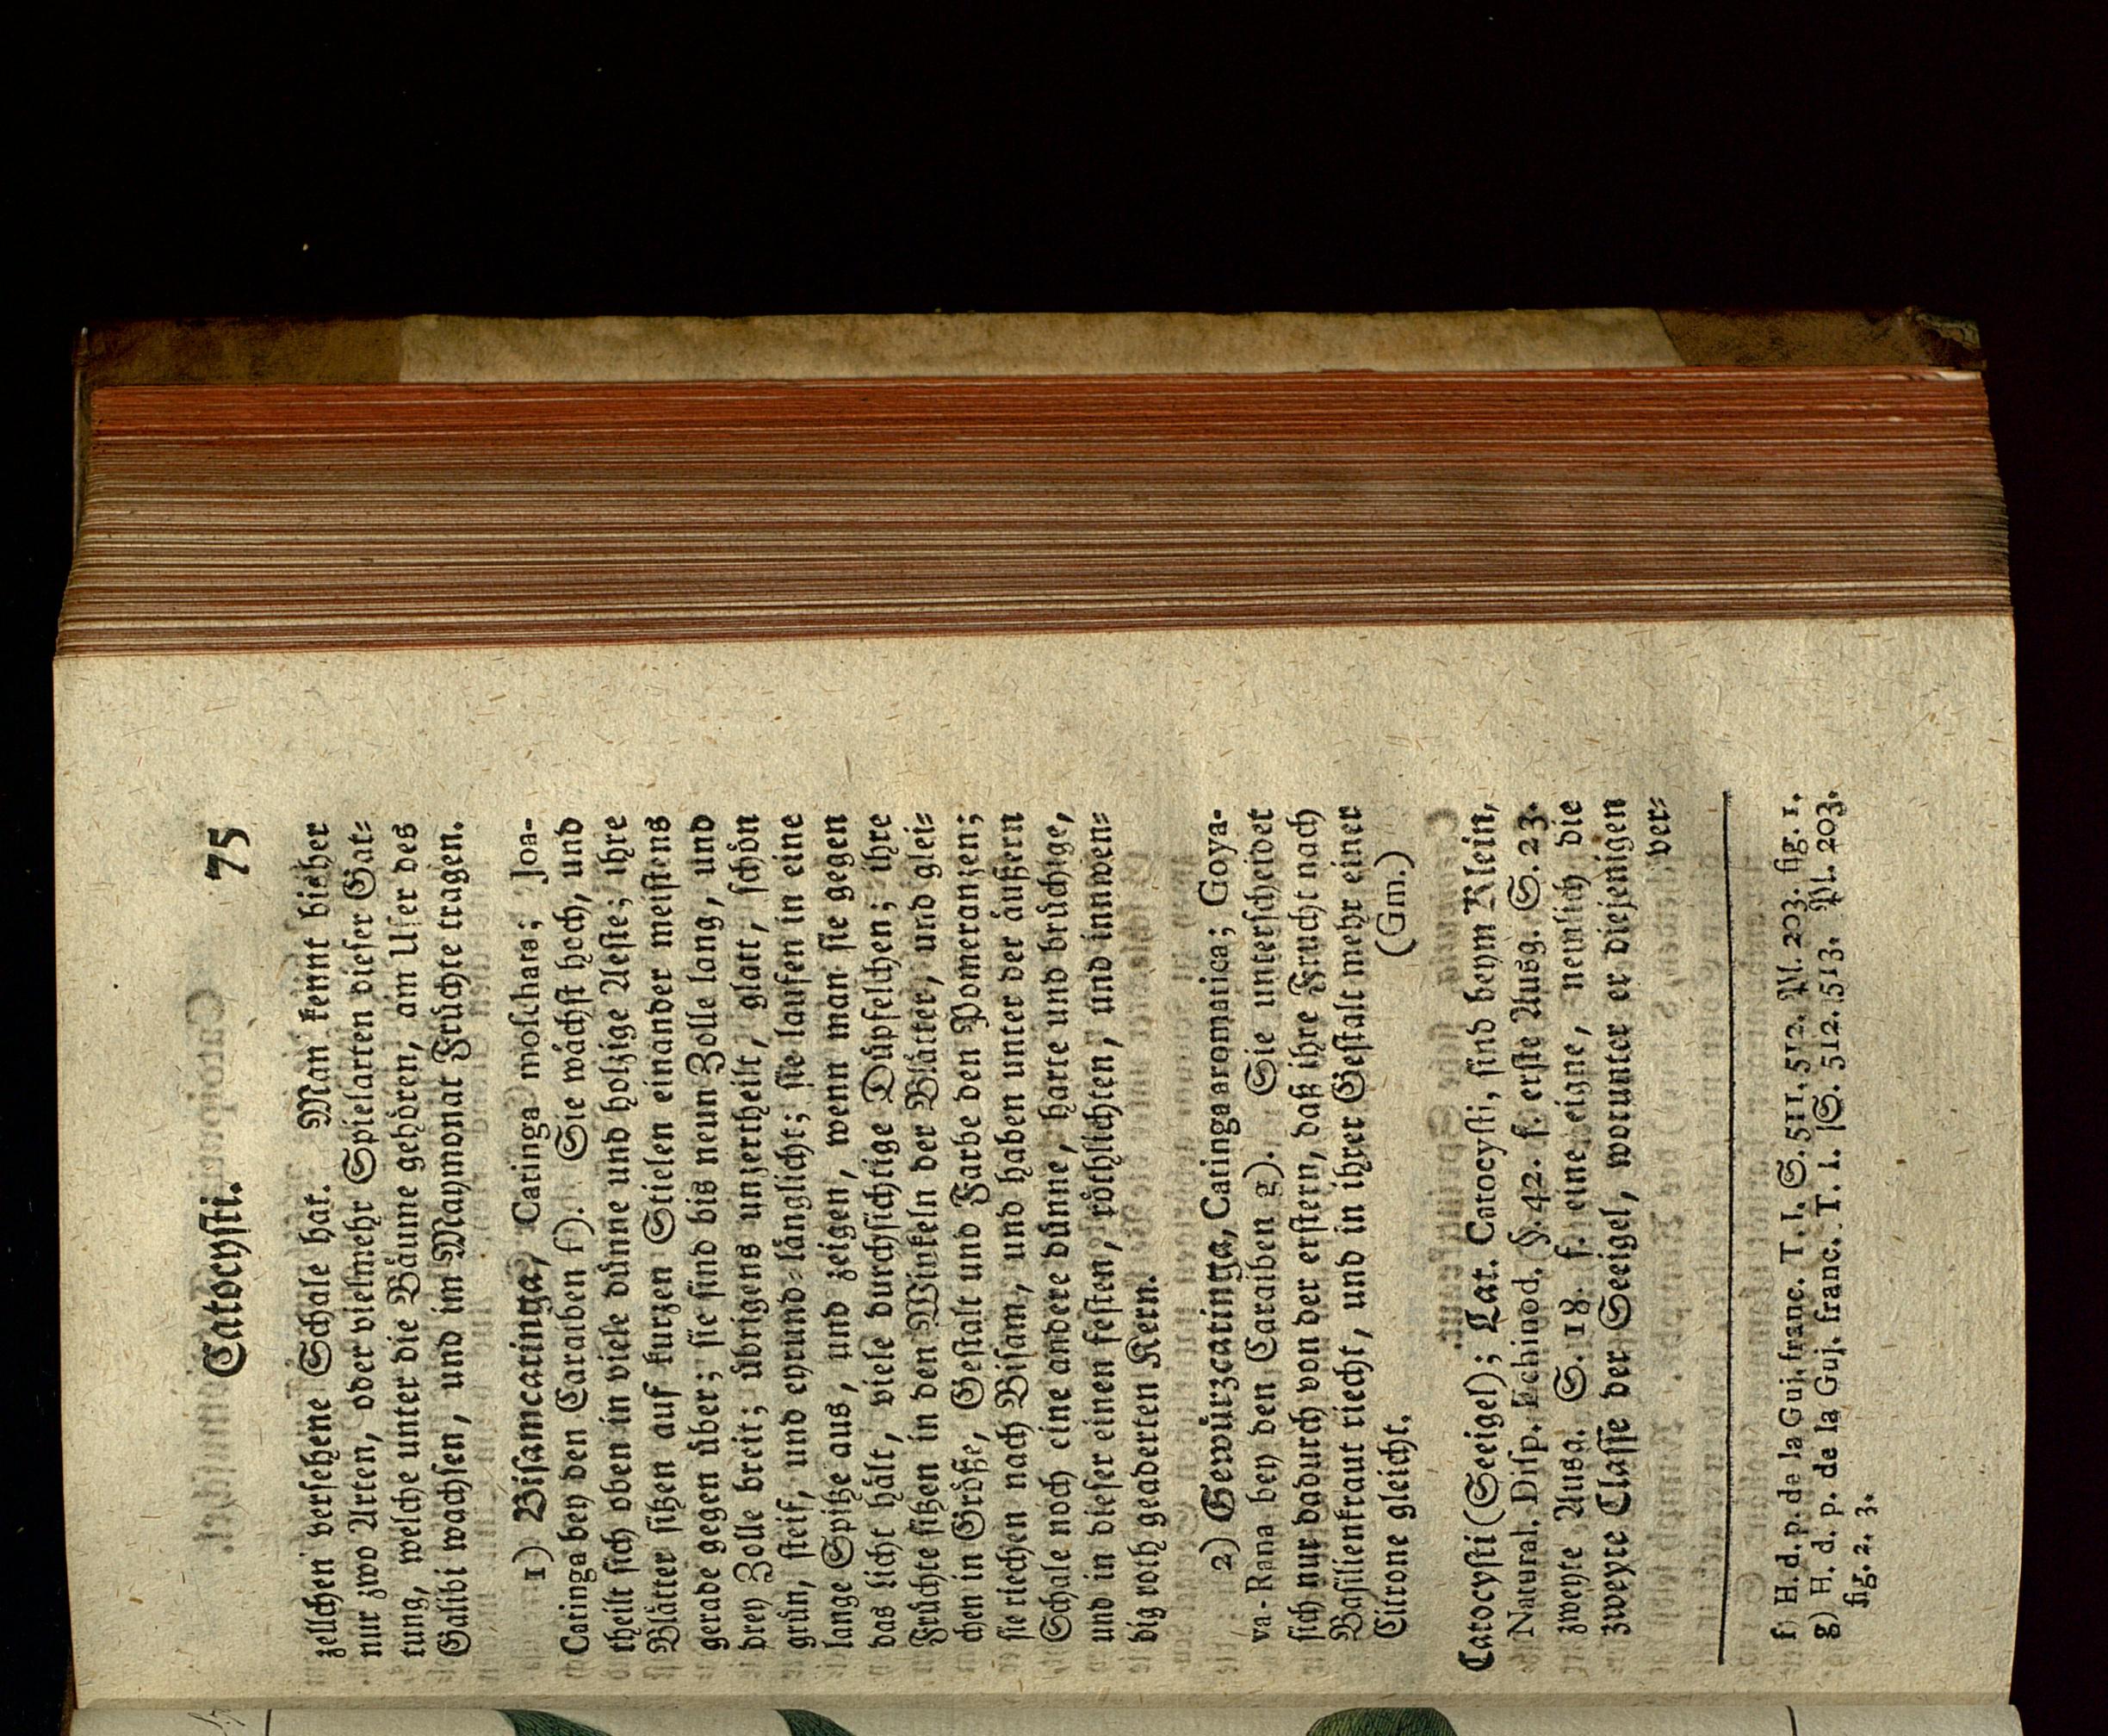 Catocysti. 75
zellchen versehene Schale hat. Man kennt bisher
nur zwo Arten, oder vielmehr Spielarten dieser Gat=
tung, welche unter die Bäume gehören, am Ufer des
Galibi wachsen, und im Maymonat Früchte tragen.
1) Bisamcatinga, Catinga moschata; Joa-
Catinga bey den Caraiben f). Sie wächst hoch, und
theilt sich oben in viele dünne und holzige Aeste; ihre
Blätter sitzen auf kurzen Stielen einander meistens
gerade gegen über; sie sind bis neun Zolle lang, und
drey Zolle breit; übrigens unzertheilt, glatt, schön
grün, steif, und eyrund=länglicht; sie laufen in eine
lange Spitze aus, und zeigen, wenn man sie gegen
das Licht hält, viele durchsichtige Düpfelchen; ihre
Früchte sitzen in den Winkeln der Blätter, und glei=
chen in Größe, Gestalt und Farbe den Pomeranzen;
sie riechen nach Bisam, und haben unter der äußern
Schale noch eine andere dünne, harte und brüchige,
und in dieser einen festen, röthlichten, und innwen=
dig roth geaderten Kern.
2) Gewürzcatinga, Catinga aromatica; Goya-
va-Rana bey den Caraiben g). Sie unterscheidet
sich nur dadurch von der erstern, daß ihre Frucht nach
Basilienkraut riecht, und in ihrer Gestalt mehr einer
Citrone gleicht. (Gm.)
Catocysti (Seeigel); Lat. Catocysti, sind beym Klein,
Natural. Disp. Echinod. §. 42. f. erste Ausg. S. 23.
zweyte Ausg. S. 18. f. eine eigne, nemlich die
zweyte Classe der Seeigel, worunter er diejenigen
ver=
f) H. d. p. de la Guj. franc. T. I. S. 511. 512. Pl. 203. fig. 1.
g) H. d. p. de la Guj. franc. T. I. S. 512. 513. Pl. 203.
fig. 2. 3.